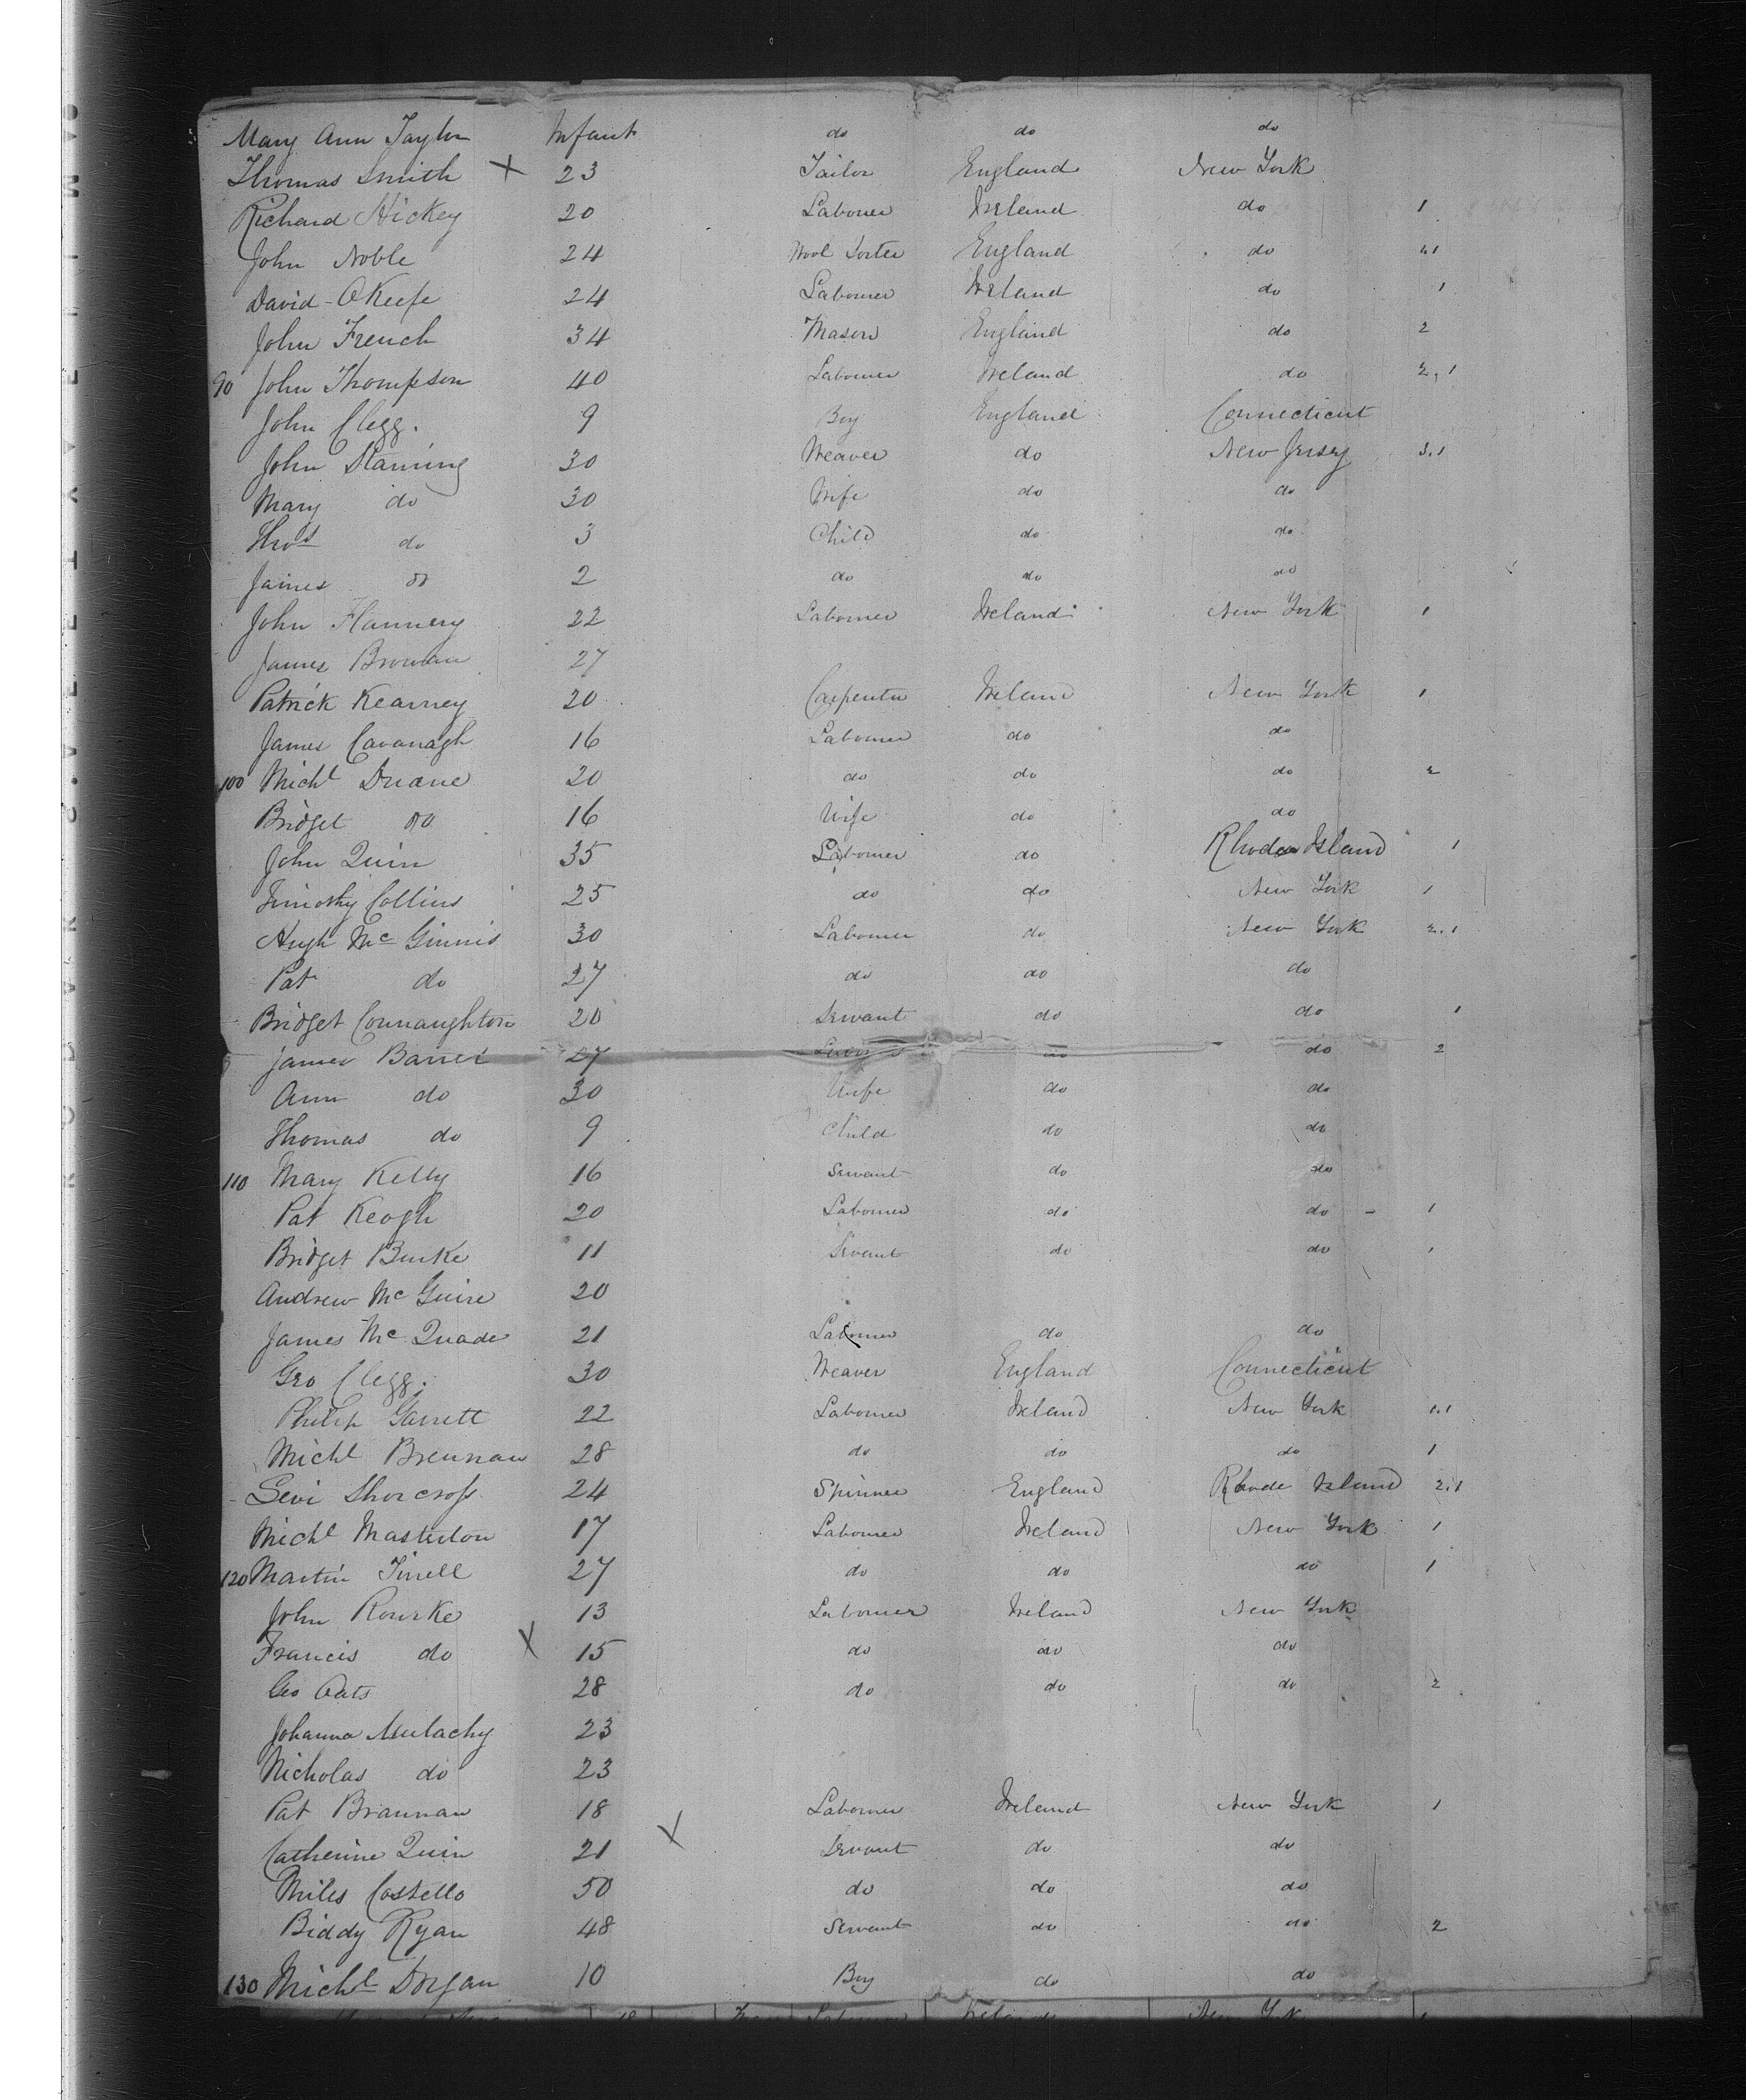 Mary Ann Taylor Infant do do do
Thomas Smith X 23 Tailor England New York
Richard Hickey 20 Laborer Ireland do 1
John Noble 24 Wool Sorter England do 2,1
David O'Keefe 24 Laborer Ireland do 1
John French 34 Mason England do 2
90 John Thompson 40 Laborer Ireland do 2,1
John Clegg. 9 Boy England Connecticut
John 30 Weaver do New Jersey 3,1
Mary do 30 Wife do do
Thos do 3 Child do do
James do 2 do do do
John Flannery 22 Laborer Ireland New York 1
James 27
Patrick Kearney 20 Carpenter Ireland New York 1
James Cavanagh 16 Laborer do do
100 Michl Duane 20 do do do 2
Bridget do 16 Wife do do
John Quin 35 Laborer do Rhode Island 1
Timothy Collins 25 do do New York 1
Hugh Mc Ginnis 30 Laborer do New York 2,1
Pat do 27 do do do
Bridget Connaughton 20 Servant do do 1
James 27 do do 2
Ann do 30 Wife do do
Thomas do 9 Child do do
110 Mary Kelly 16 Servant do do
Pat Keogh 20 Laborer do do - 1
Bridget Burke 11 Servant do do 1
Andrew Mc Guire 20
James Mc Quade 21 Laborer do do
Geo Clegg. 30 Weaver England Connecticut
Philip Garrett 22 Laborer Ireland New York 1,1
Michl Brennan 28 do do do 1
Levi Shorcross 24 Spinner England Rhode Island 2,1
Michl Masterton 17 Laborer Ireland New York 1
120 Martin Tirrell 27 do do do 1
John Rourke 13 Laborer Ireland New York
Francis do X 15 do do do
Geo Oats 28 do do do 2
Johanna Mulachy 23
Nicholas do 23
Pat Brannan 18 Laborer Ireland New York 1
Catherine Quin 21 X Servant do do
Miles Costello 50 do do do
Biddy Ryan 48 Servant do do 2
130 Michl Dorgan 10 Boy do do
18 Laborer Ireland New York